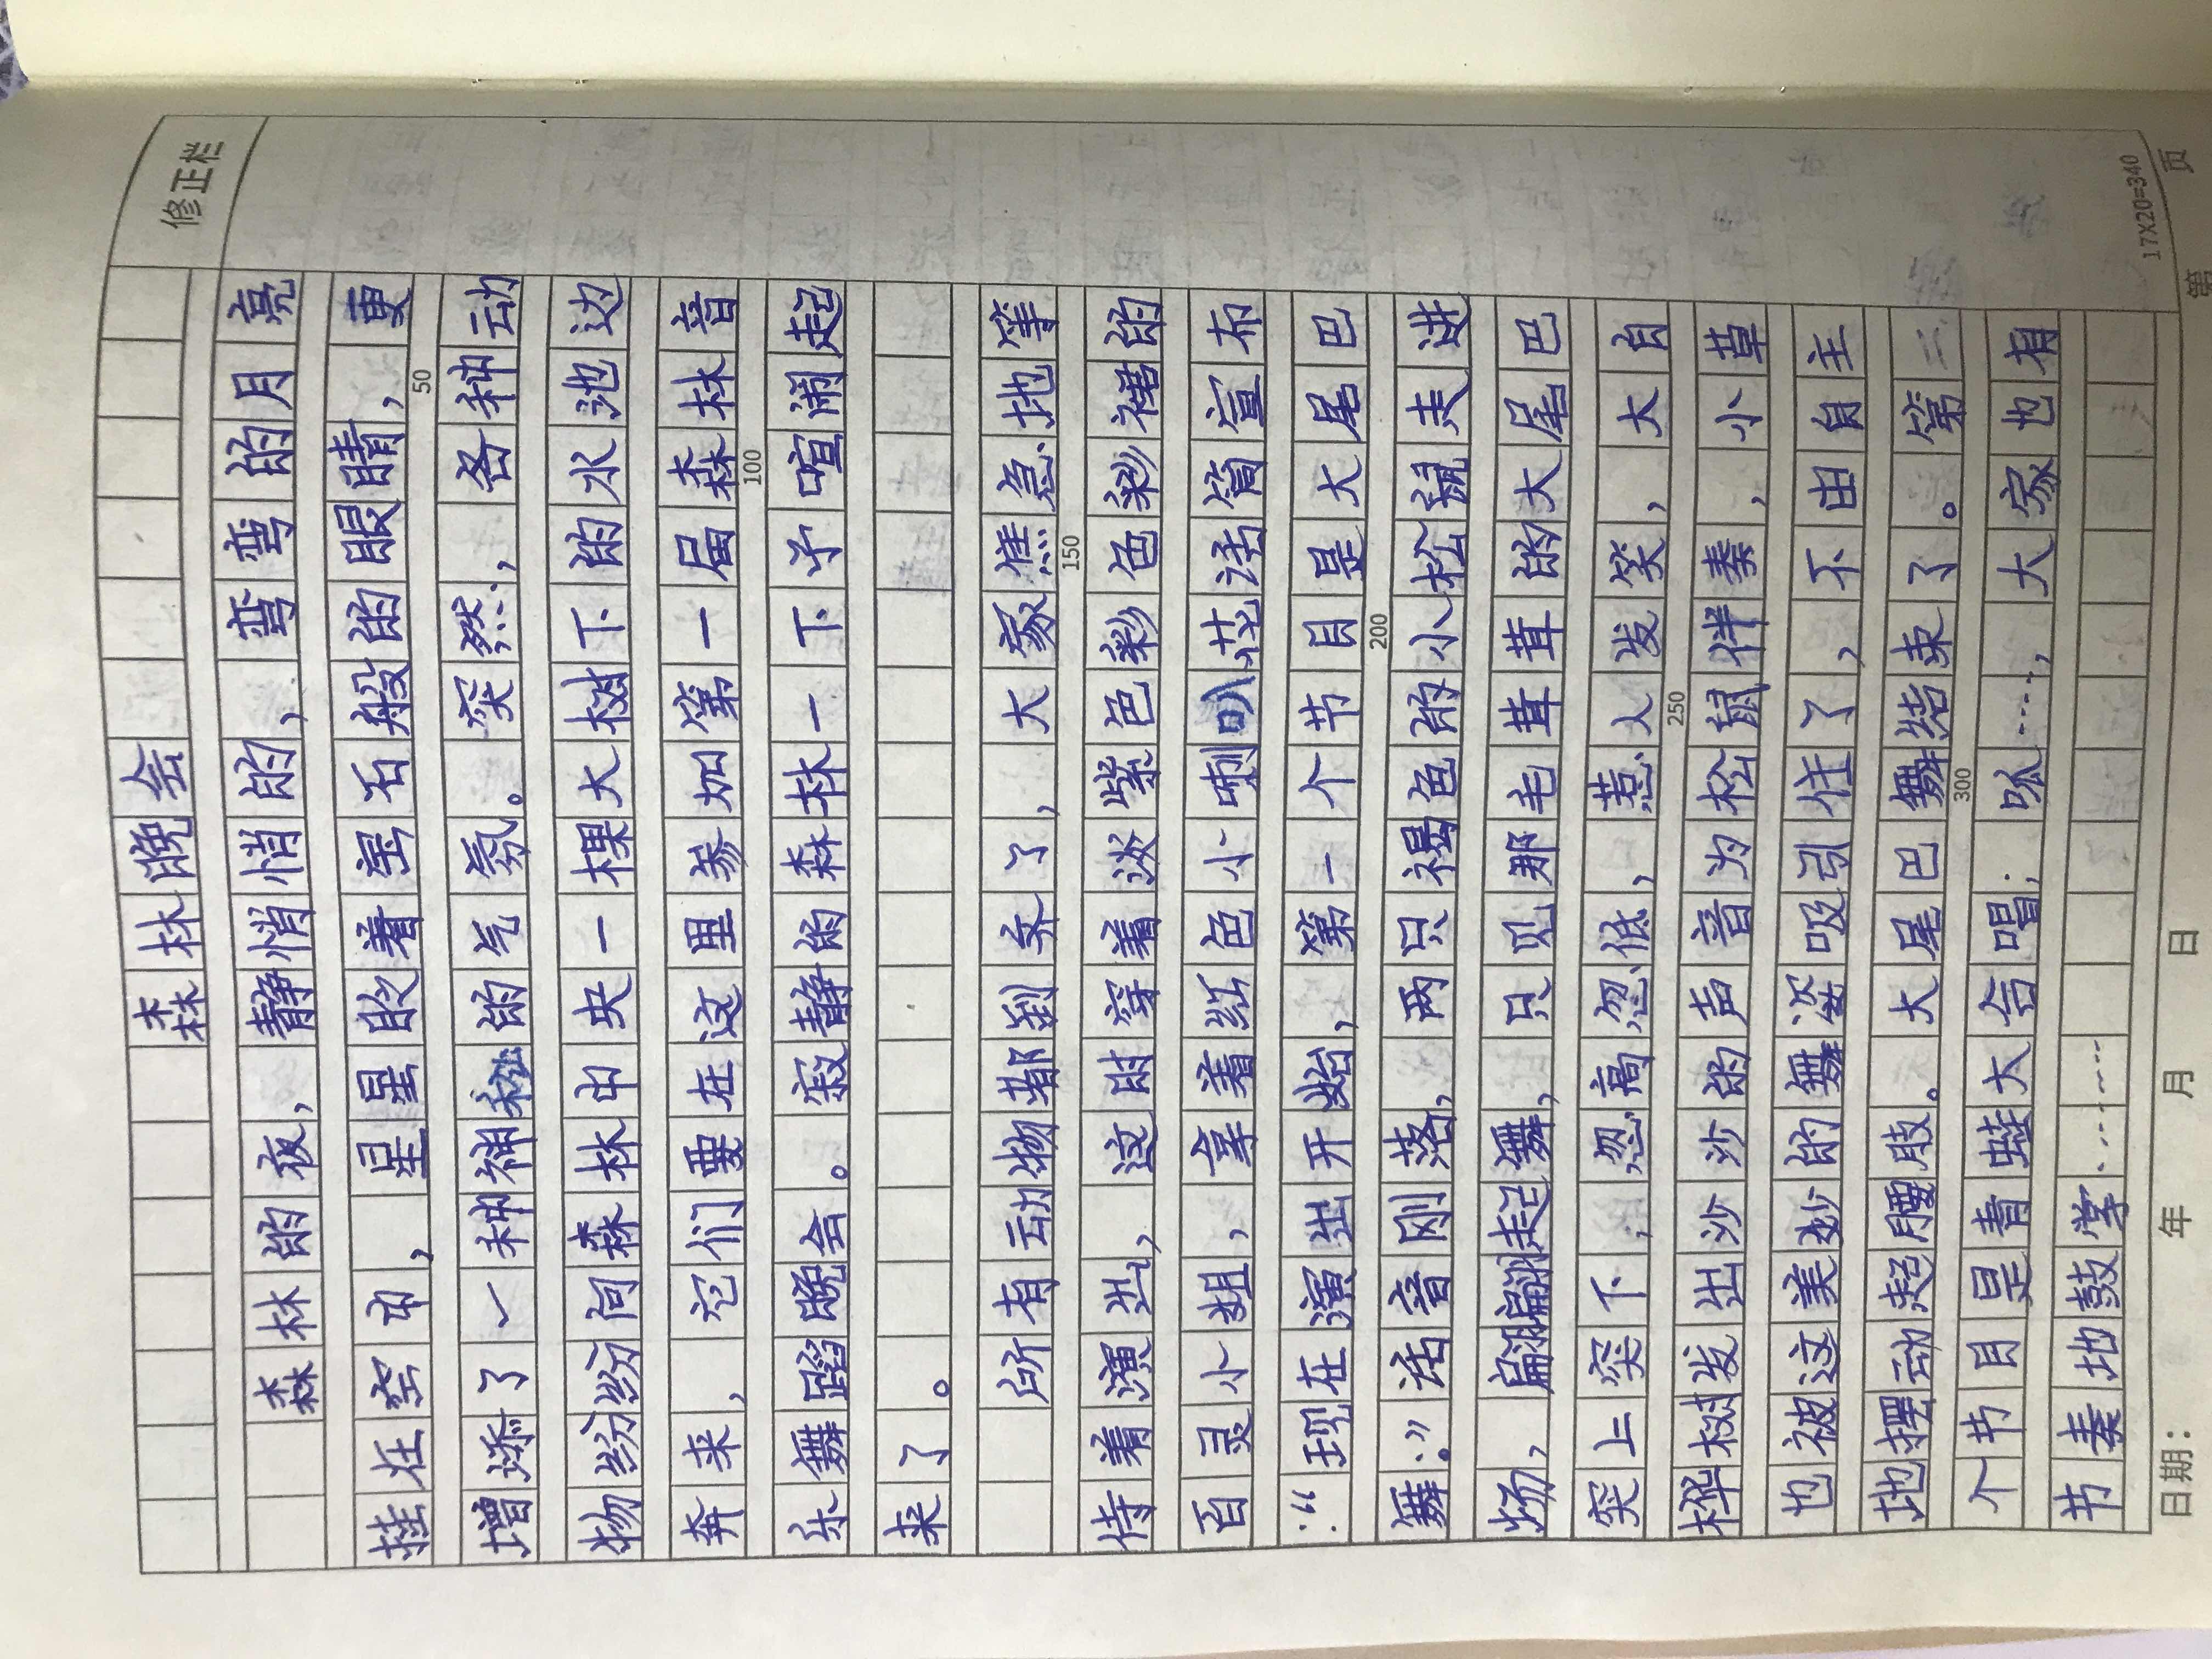 修正栏
森林晚会
森林的夜,静悄悄的,弯弯的月亮
挂在空中,星星眨着宝石般的眼睛,更
50
增添了一种神秘的气氛。突然,各种动
物纷纷向森林中央一棵大树下的水池边
奔来,它们要在这里参加第一届森林音
100
乐舞蹈晚会。寂静的森林一下子喧闹起
来了。
所有动物都到齐了,大家焦急地等
150
待着演出,这时穿着淡紫色彩色彩裙的
百灵小姐,拿着红色小喇叭花话筒宣布
:“现在演出开始,第一个节目是大尾巴
200
舞。”话音刚落,两只褐色的小松鼠走进
场,翩翩起舞,只见那毛茸茸的大尾巴
突上突下,忽高忽低,惹人发笑,大白
250
桦树发出沙沙的声音为松鼠伴奏,小草
也被这美妙的舞姿吸引住了,不由自主
地摆动起腰肢。大尾巴舞结束了。第二
300
个节目是青蛙大合唱;呱……,大家也有
节奏地鼓掌………
17X20=340
日期: 年 月 日 第 页